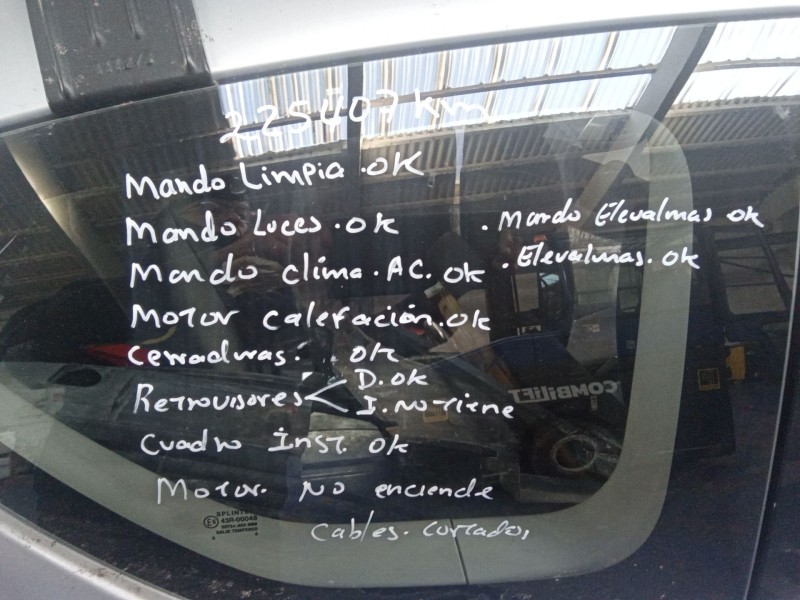 225407 km
Mando Limpia . OK
Mando Luces . OK
. Mando Elevalunas ok
Mando clima . A.C. OK
. Elevalunas. ok
Motor calefación. ok
Cerraduras. ok
Retrovisores < D. ok
I. no tiene
Cuadro Inst. ok
Motor. No enciende
Cables. cortados
COMBILIFT
43R-00048